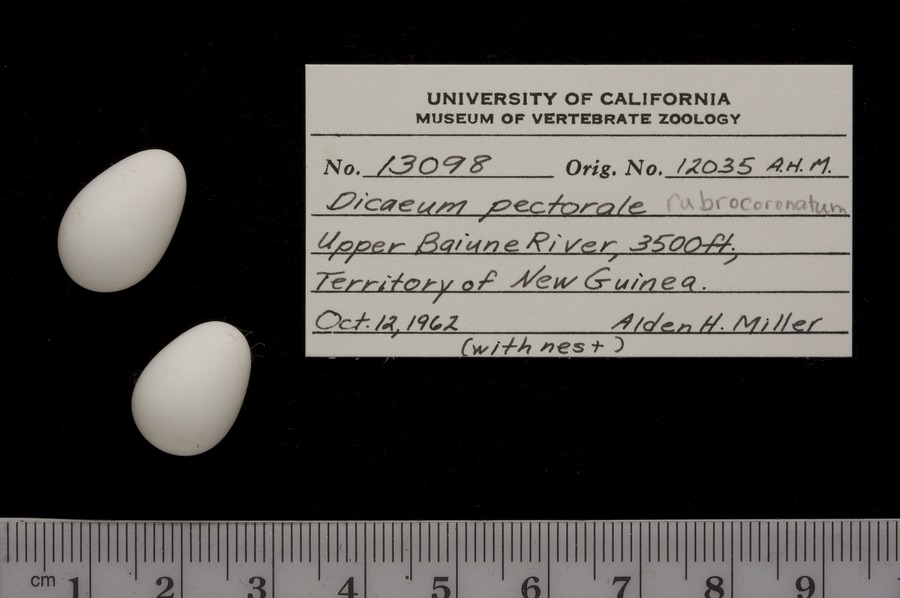 UNIVERSITY OF CALIFORNIA
MUSEUM OF VERTEBRATE ZOOLOGY
No. 13098 Orig. No. 12035 A.H.M.
Dicaeum pectorale rubrocoronatum
Upper Baiune River, 3500ft,
Territory of New Guinea.
Oct. 12, 1962 Alden H. Miller
(with nest)
cm 1 2 3 4 5 6 7 8 9